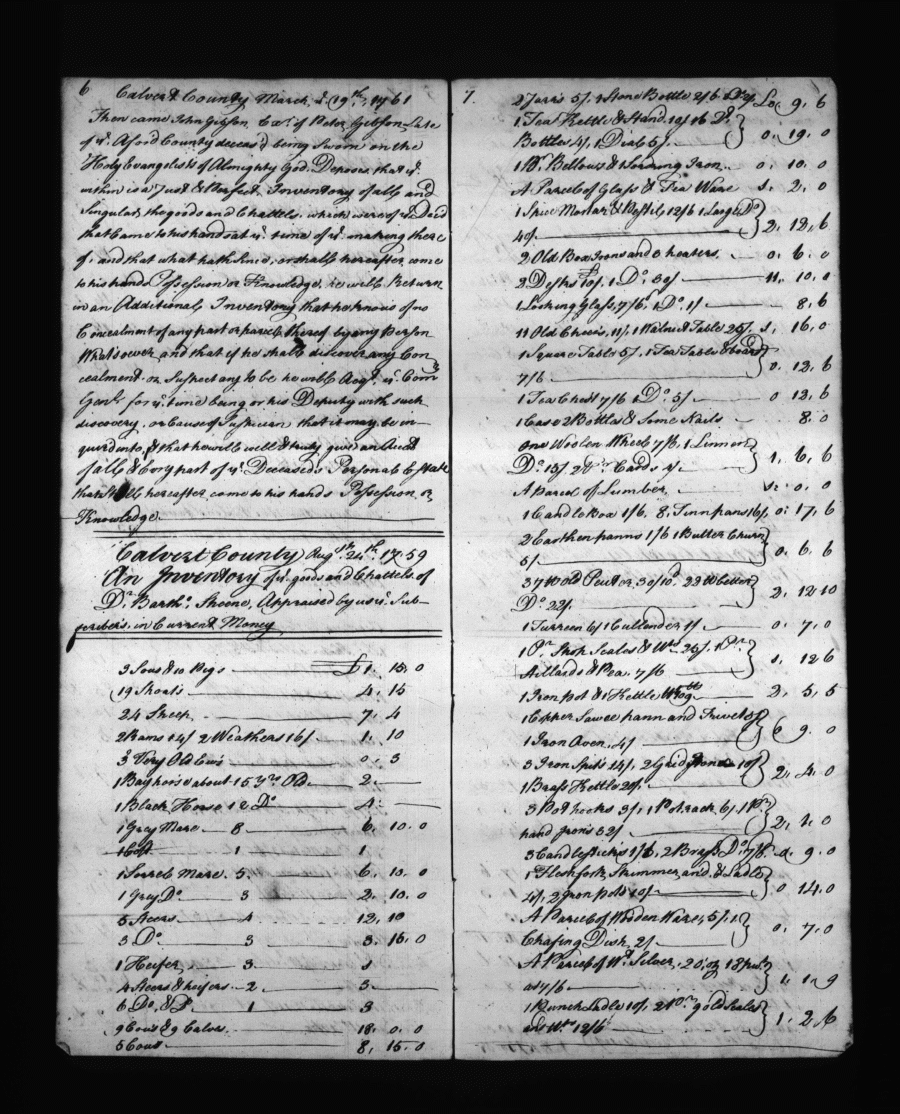 6
Calvert County March ye 19th, 1761
Then came John Gibson Exr. of Peter Gibson Late
of ye Aford County deceasd being Sworn on the
Holy Evangelists of Almighty God, Deposes that ye
within is a Just & Perfect Inventory of all and
Singular the goods and Chattels which were of ye Decd
that Came to his hands at ye time of ye making there
of, and that what hath Since, or shall hereafter come
to his hands Possession or Knowledge, he will Return
in an Additional Inventory that he knows of no
Concealment of any part or parcel thereof by any Person
Whatsoever, and that if he shall discover any Con
cealment or Suspect any to be he will Acqt. ye Com
Genl. for ye time being or his Deputy with such
discovery, or Cause of Suspicion that it may be in-
quired into, & that he will well & truly give an Acct
of all & Evry part of ye Deceaseds Personal Estate
that shall hereafter come to his hands Possession or
Knowledge
Calvert County Augth. 24th. 1759
An Inventory of ye goods and Chattels of
Dr. Bartho. Skeene, Appraised by us ye Sub-
scribers, in Current Money
3 Sows & 10 Pigs £1. 15. 0
19 Shoats 4. 15
24 Sheep 7. 4
2 Rams 14/ 2 Weathers 16/ 1. 10
3 Very Old Ews 0. 3
1 Bay horse about 15 Yrs Old 2.
1 Black Horse 12 Do 4.
1 Grey Mare 8 6. 10. 0
1 Colt 1 1
1 Sorrel Mare 5 6. 10. 0
1 Grey Do 3 2. 10. 0
5 Steers 4 12. 10
3 Do 3 3. 15. 0
1 Heifer 3 1
4 Steers & heifers 2 3
6 Do & Do 1 3
9 Cows & 9 Calves 18. 0. 0
5 Cows 8. 15. 0
7.
2 Jarrs 5/. 1 Stone Bottle 2/6 £0. 9. 6
1 Tea Kettle & Stand 10/ 16 Do
Bottles 4/. 1 Dial 5/ 0. 19. 0
1 Pr. Bellows & Iron 0. 10. 0
A Parcel of Glass & Tea Ware 1. 2. 0
1 Spice Mortar & Pestil, 12/6 1 Large Do
40/ 2. 12. 6
2 Old Box Irons and heaters 0. 6. 0
2 Desks 1 Do. 30/ 11. 10. 0
1 Looking Glass, 7/6, 1 Do. 1/ 8. 6
11 Old Cheirs, 11/. 1 Walnut Table 25/. 1. 16. 0
1 Square Table 5/. 1 Tea Table & board
7/6 0. 12. 6
1 Tea Chest 7/6 1 Do. 5/ 0 12. 6
1 Case 2 Bottles & Some Nails 8. 0
One Woolen Wheel 7/6, 1 Linnen
Do. 15/ 2 Pr. Cards 4/ 1. 6. 6
A Parcel of Lumber 1. 0. 0
1 Candle Box 1/6, 8 Tinn pans 16/, 0. 17, 6
2 Earthen panns 1/6 1 Butter Churn
5/ 0. 6. 6
37 lb Old Peuter 30/10. 22 lb better
Do. 22/. 2. 12 10
1 Turreen 6/ 1 Cullender 1/ 0. 7. 0
1 Pr. Shok Scales & Wts 25/. 1 Pr.
Stillards & Pea 7/6 1. 12 6
1 Iron pot & 1 Kettle 2. 5. 5
1 Copper Sawce pann and Trivet 5/
1 Iron Oven 4/ 9. 0
3 Iron Spits 14/, 2 Gridirons 10/
1 Brass Kettle 20/. 2. 4. 0
3 Pot hooks 3/, 1 Pot rack 6/. 1 Pr.
hand Irons 32/ 2. 1. 0
3 Candlesticks 1/6, 2 Brass Do. 7/6 0. 9. 0
1 Flesh fork, Skimmer and Ladle
4/, 2 Iron pots 10/ 0 14. 0
A Parcel of Wooden Ware, 5/. 1
Chafing Dish, 2/ 0. 7. 0
A Parcel of Wt. Silver, 2 oz 18 pwt.
at 7/6 1. 1. 9
1 Punch Ladle 10/. 2 Pr. gold Scales
and Wts 12/6 1. 2. 6